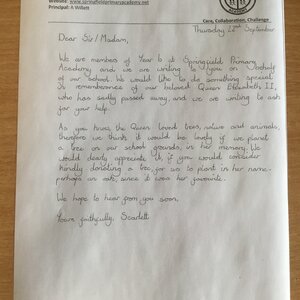 Website: www.springfieldprimaryacademy.net
Principal: A Willett
Care, Collaboration, Challenge
Thursday 22nd September
Dear Sir/Madam,
We are members of Year 6 at Springfield Primary
Academy and we are writing to you on behalf
of our School. We would like to do something special
in rememberance of our beloved Queen Elizabeth II,
who has sadly passed away, and we are writing to ask
for your help.
As you know, the Queen loved trees, nature and animals,
therefore we think it would be lovely if we planet
a tree on our school grounds, in her memory. We
would dearly appreciate it, if you would consider
kindly donating a tree, for us to plant in her name -
perhaps an oak, since it was her favourite.
We hope to hear from you soon,
Yours faithfully, Scarlett